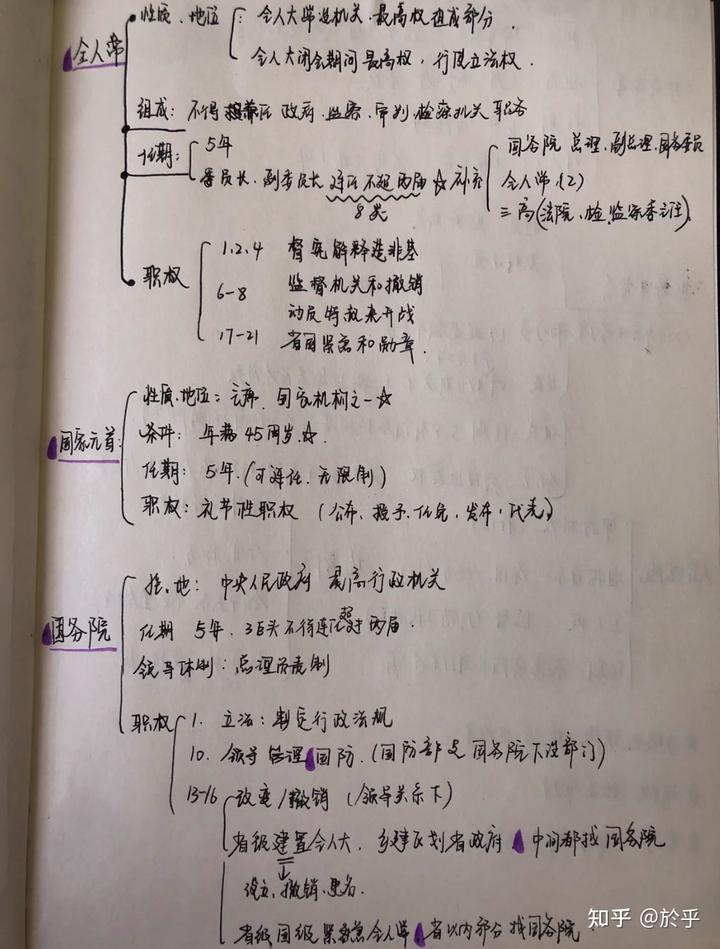 全人常
性质、地位：全人大常设机关、最高权组成部分
全人大闭会期间最高权，行国立法权.
组成：不得担任政府、监察、审判、检察机关职务
任期：5年
委员长、副委员长连任不超两届☆补充
8类
国务院 总理、副总理、国务委员
全人常 (2)
三高(法院、检、监察委主任)
职权
1.2.4 督宪解释造非基
6-8 监督机关和撤销
动员特赦来开战
17-21 省国紧急和勋章.
国家元首：
性质、地位：主席、国家机构之一☆
条件：年满45周岁☆.
任期：5年.(可连任、无限制)
职权：礼节性职权 (公布、授予、任免、发布、代表)
国务院
性、地：中央人民政府 最高行政机关
任期 5年. 3巨头不得连任超过两届.
领导体制：总理负责制
职权
1. 立法：制定行政法规
10. 领导管理国防.(国防部是国务院下设部门)
13-16 改变/撤销 (领导关系下)
省级建置全人大，乡建区划省政府 中间都找国务院
设立、撤销、更名.
省级国级紧急全人常 省以内部分找国务院.
知乎 @於乎